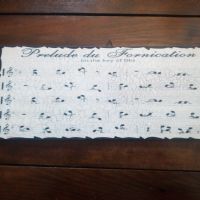 Prelude du Fornication
in the key of Dbz